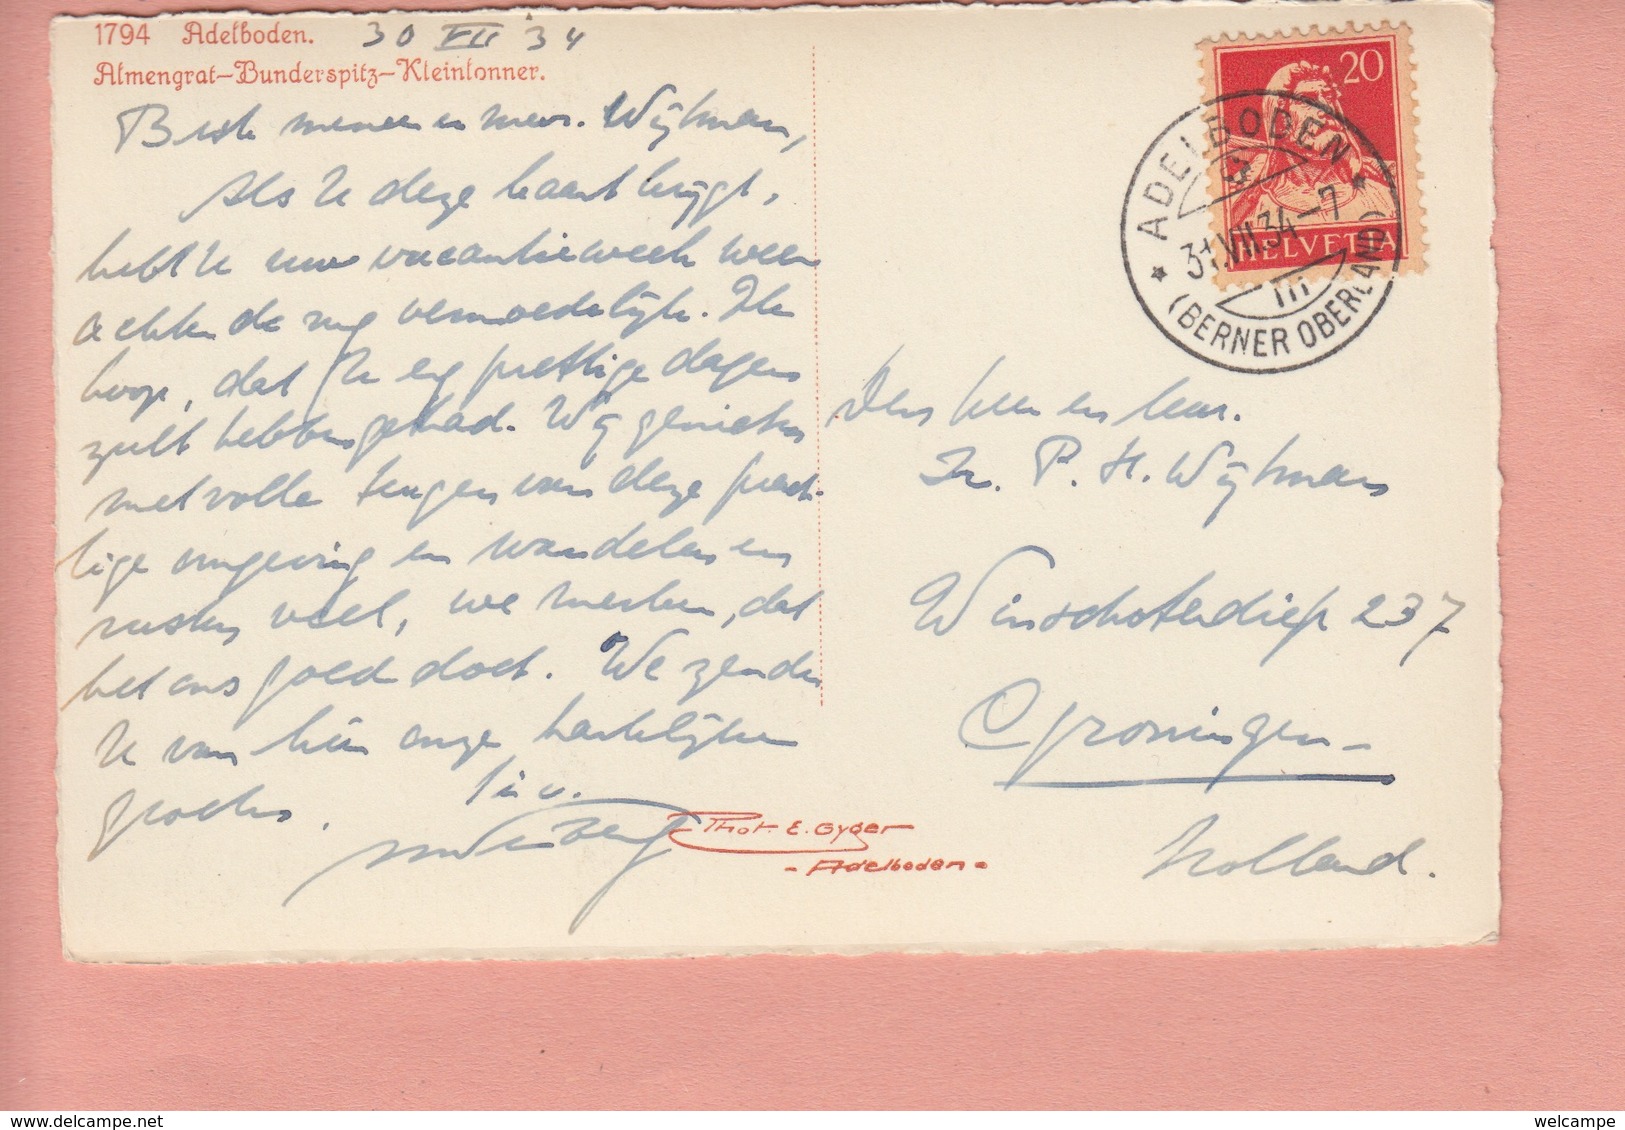 1794 Adelboden. 30 VII '34
Almengrat-Bunderspitz-Kleinlonner.
Beste meneer en mevr. Wijkman,
Als U deze kaart krijgt,
hebt U uw vacantieweek weer
achter de rug vermoedelijk. Ik
hoop, dat U erg prettige dagen
zult hebben gehad. Wij genieten
met volle teugen van deze prach-
tige omgeving en wandelen en
rusten veel, we merken, dat
het ons goed doet. We zenden
U van hier onze hartelijke
groeten.
20
HELVETIA
ADELBODEN
31.VII.34-7
III
(BERNER OBERLAND)
Den heer en mevr.
Ir. P. H. Wijkman
Winschoterdiep 237
Groningen
Holland.
Phot. E. Gyger
- Adelboden -
delcampe.net
welcampe